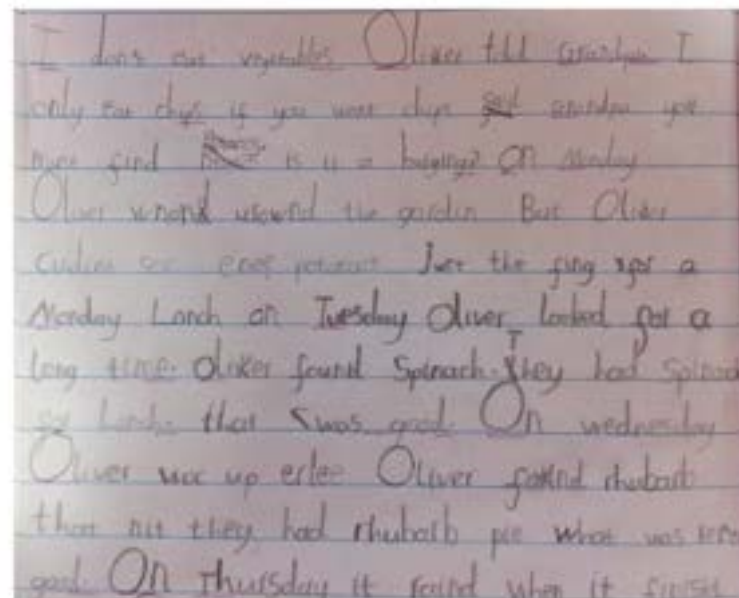 I dont eat vegetables Oliver told Grandpa I
only eat chips if you want chips said Grandpa you
must find is it a On Monday
Oliver the gardin But Oliver
see potatoes Just the fing for a
Monday Lonch on Tuesday Oliver looked for a
long time. Oliver found Spinach. They had Spinach
for Lonch that was good On wednesday
Oliver woc up erlee Oliver found rhubarb
that nit they had rhubarb pie what was
good On Thursday it raind when it finish